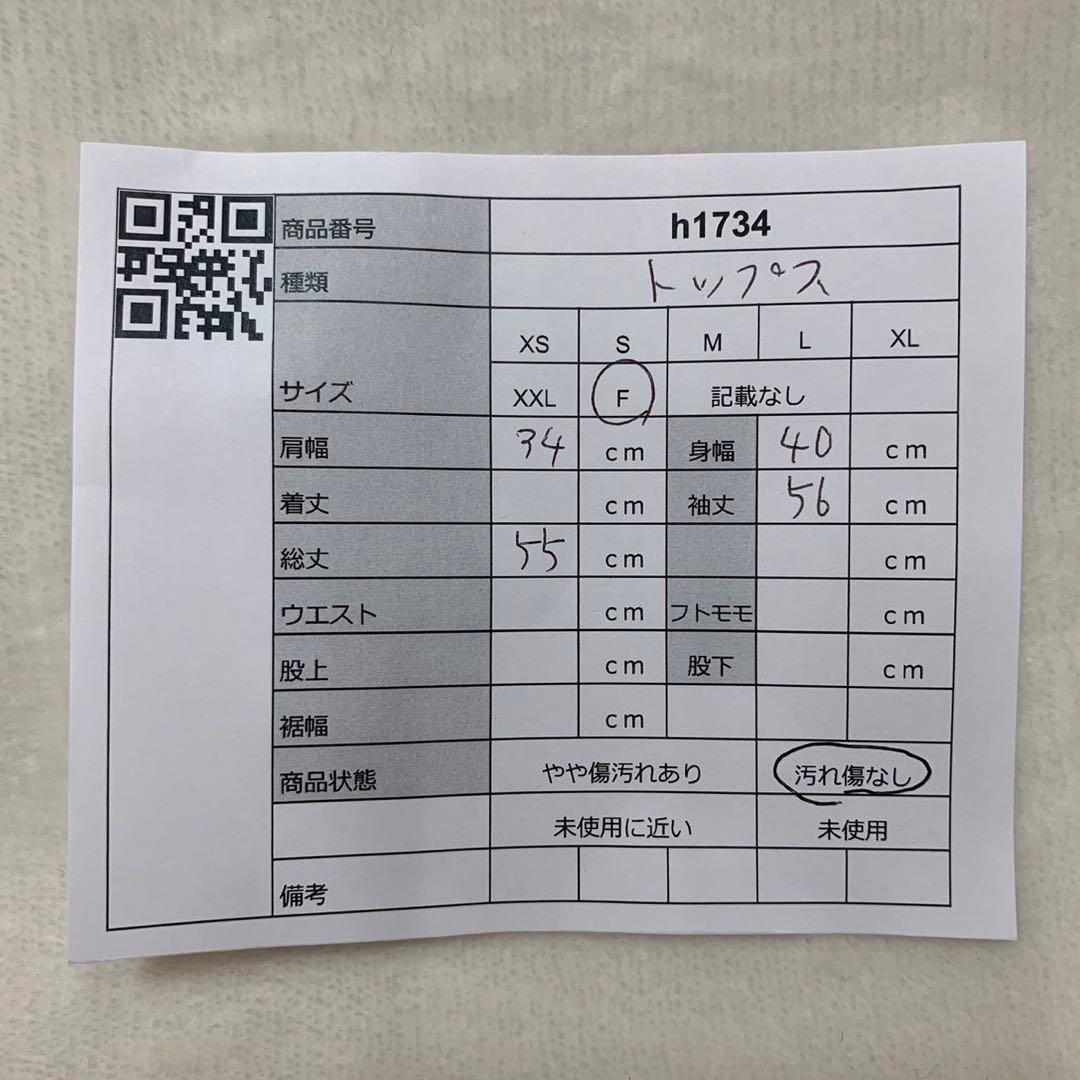 商品番号 h1734
種類 トップス
XS S M L XL
サイズ XXL F 記載なし
肩幅 34 cm 身幅 40 cm
着丈 cm 袖丈 56 cm
総丈 55 cm cm
ウエスト cm フトモモ cm
股上 cm 股下 cm
裾幅 cm
商品状態 やや傷汚れあり 汚れ傷なし
未使用に近い 未使用
備考